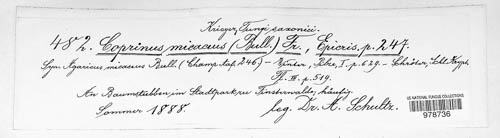 Krieger, Fungi saxonici.
482. Coprinus micaceus (Bull.) Fr., Epicris. p. 247.
Syn. Agaricus micaceus Bull. (Champ. taf. 246) - Winter, Pilze, I. p. 629. - Schröter, Schles. Krypt.
III. p. 519.
An Baumstubben im Stadtpark zu Finsterwalde, häufig.
Sommer 1888. leg. Dr. A. Schultz.
US NATIONAL FUNGUS COLLECTIONS
978736